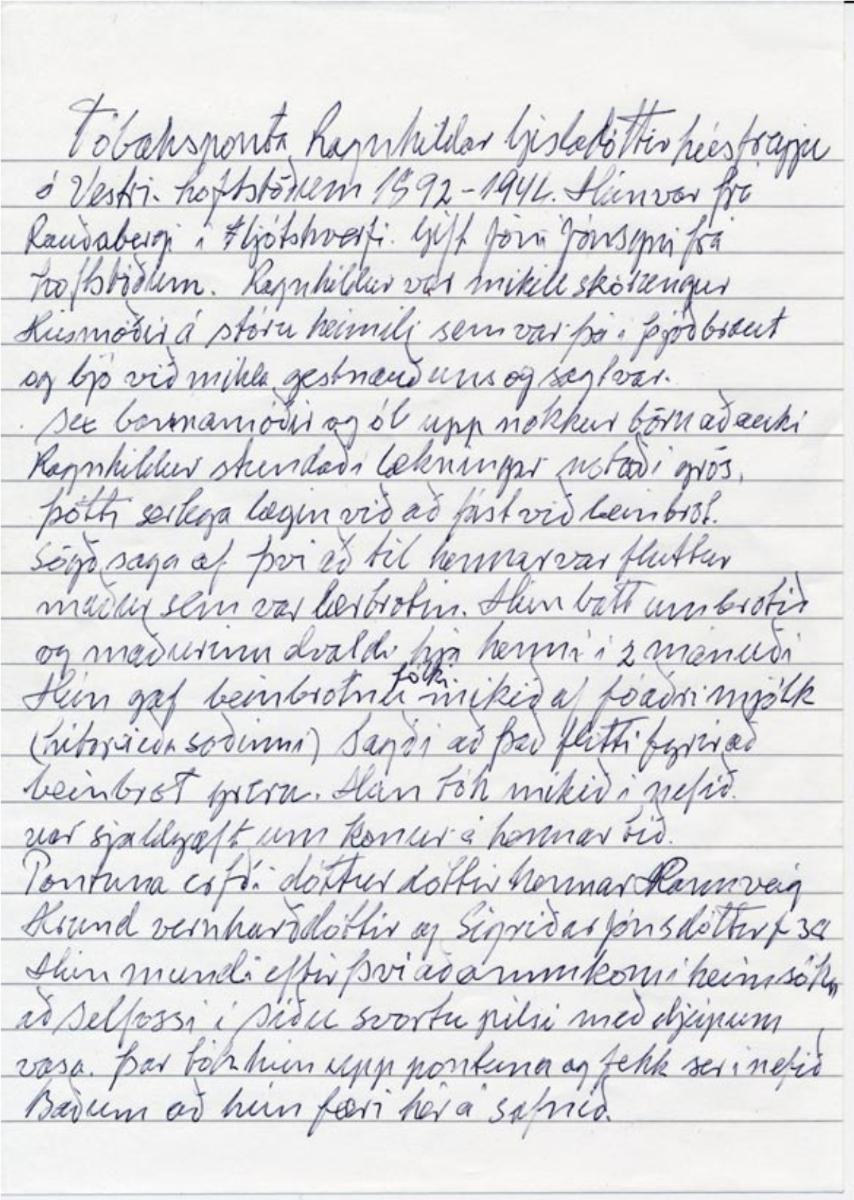 Tóbaksponta Ragnhildar Gísladóttir húsfreyju
á Vestri-Loftstöðum 1892-1941. Hún var frá
Rauðabergi í Fljótshverfi. Gift Jóni Jónssyni frá
Loftstöðum. Ragnhildur var mikill skörungur
Húsmóðir á stóru heimili sem var þá í þjóðbraut
og bjó við mikla gestnauð uns og sagt var.
Sex barnamóðir og ól upp nokkur börn að auki
Ragnhildur stundaði lækningar notaði grös,
þótti serlega lægin við að fást við beinbrot.
Sögð saga af því að til hennar var fluttur
maður sem var lærbrotin. Hún batt um brotið
og maðurinn dvaldi hjá henni í 2 mánuði
Hún gaf beinbrotnu fólki mikið af fóaðri mjólk
soðinni) Sagði að það flítti fyrir að
beinbrot greru. Hún tók mikið í nefið.
var sjaldgæft um konur á hennar tíð.
Pontuna erfði dóttur dóttir hennar Rannveig
Hrund vernharðdóttir og Sigríðar Jónsdóttur f 38
Hún mundi eftir því að amma kom í heimsókn
að Selfossi í síðu svörtu pilsi með djúpum
vasa. Þar tók hún upp pontuna og fekk ser í nefið
Báðum að hún færi hér á safnið.